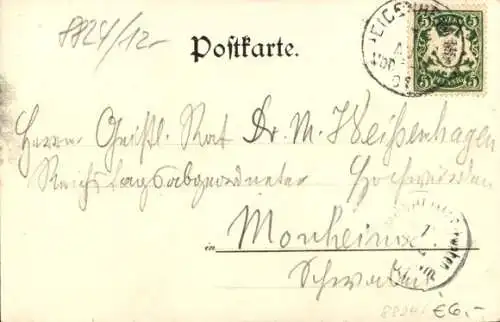 8824/12-
Postkarte.
5 5
BAYERN
5 5
Herrn Geistl. Rat Dr. M. Weißenhagen
Reichstagsabgeordneter Hochwürden
in Monheim
Schwaben
8824/ €6,-